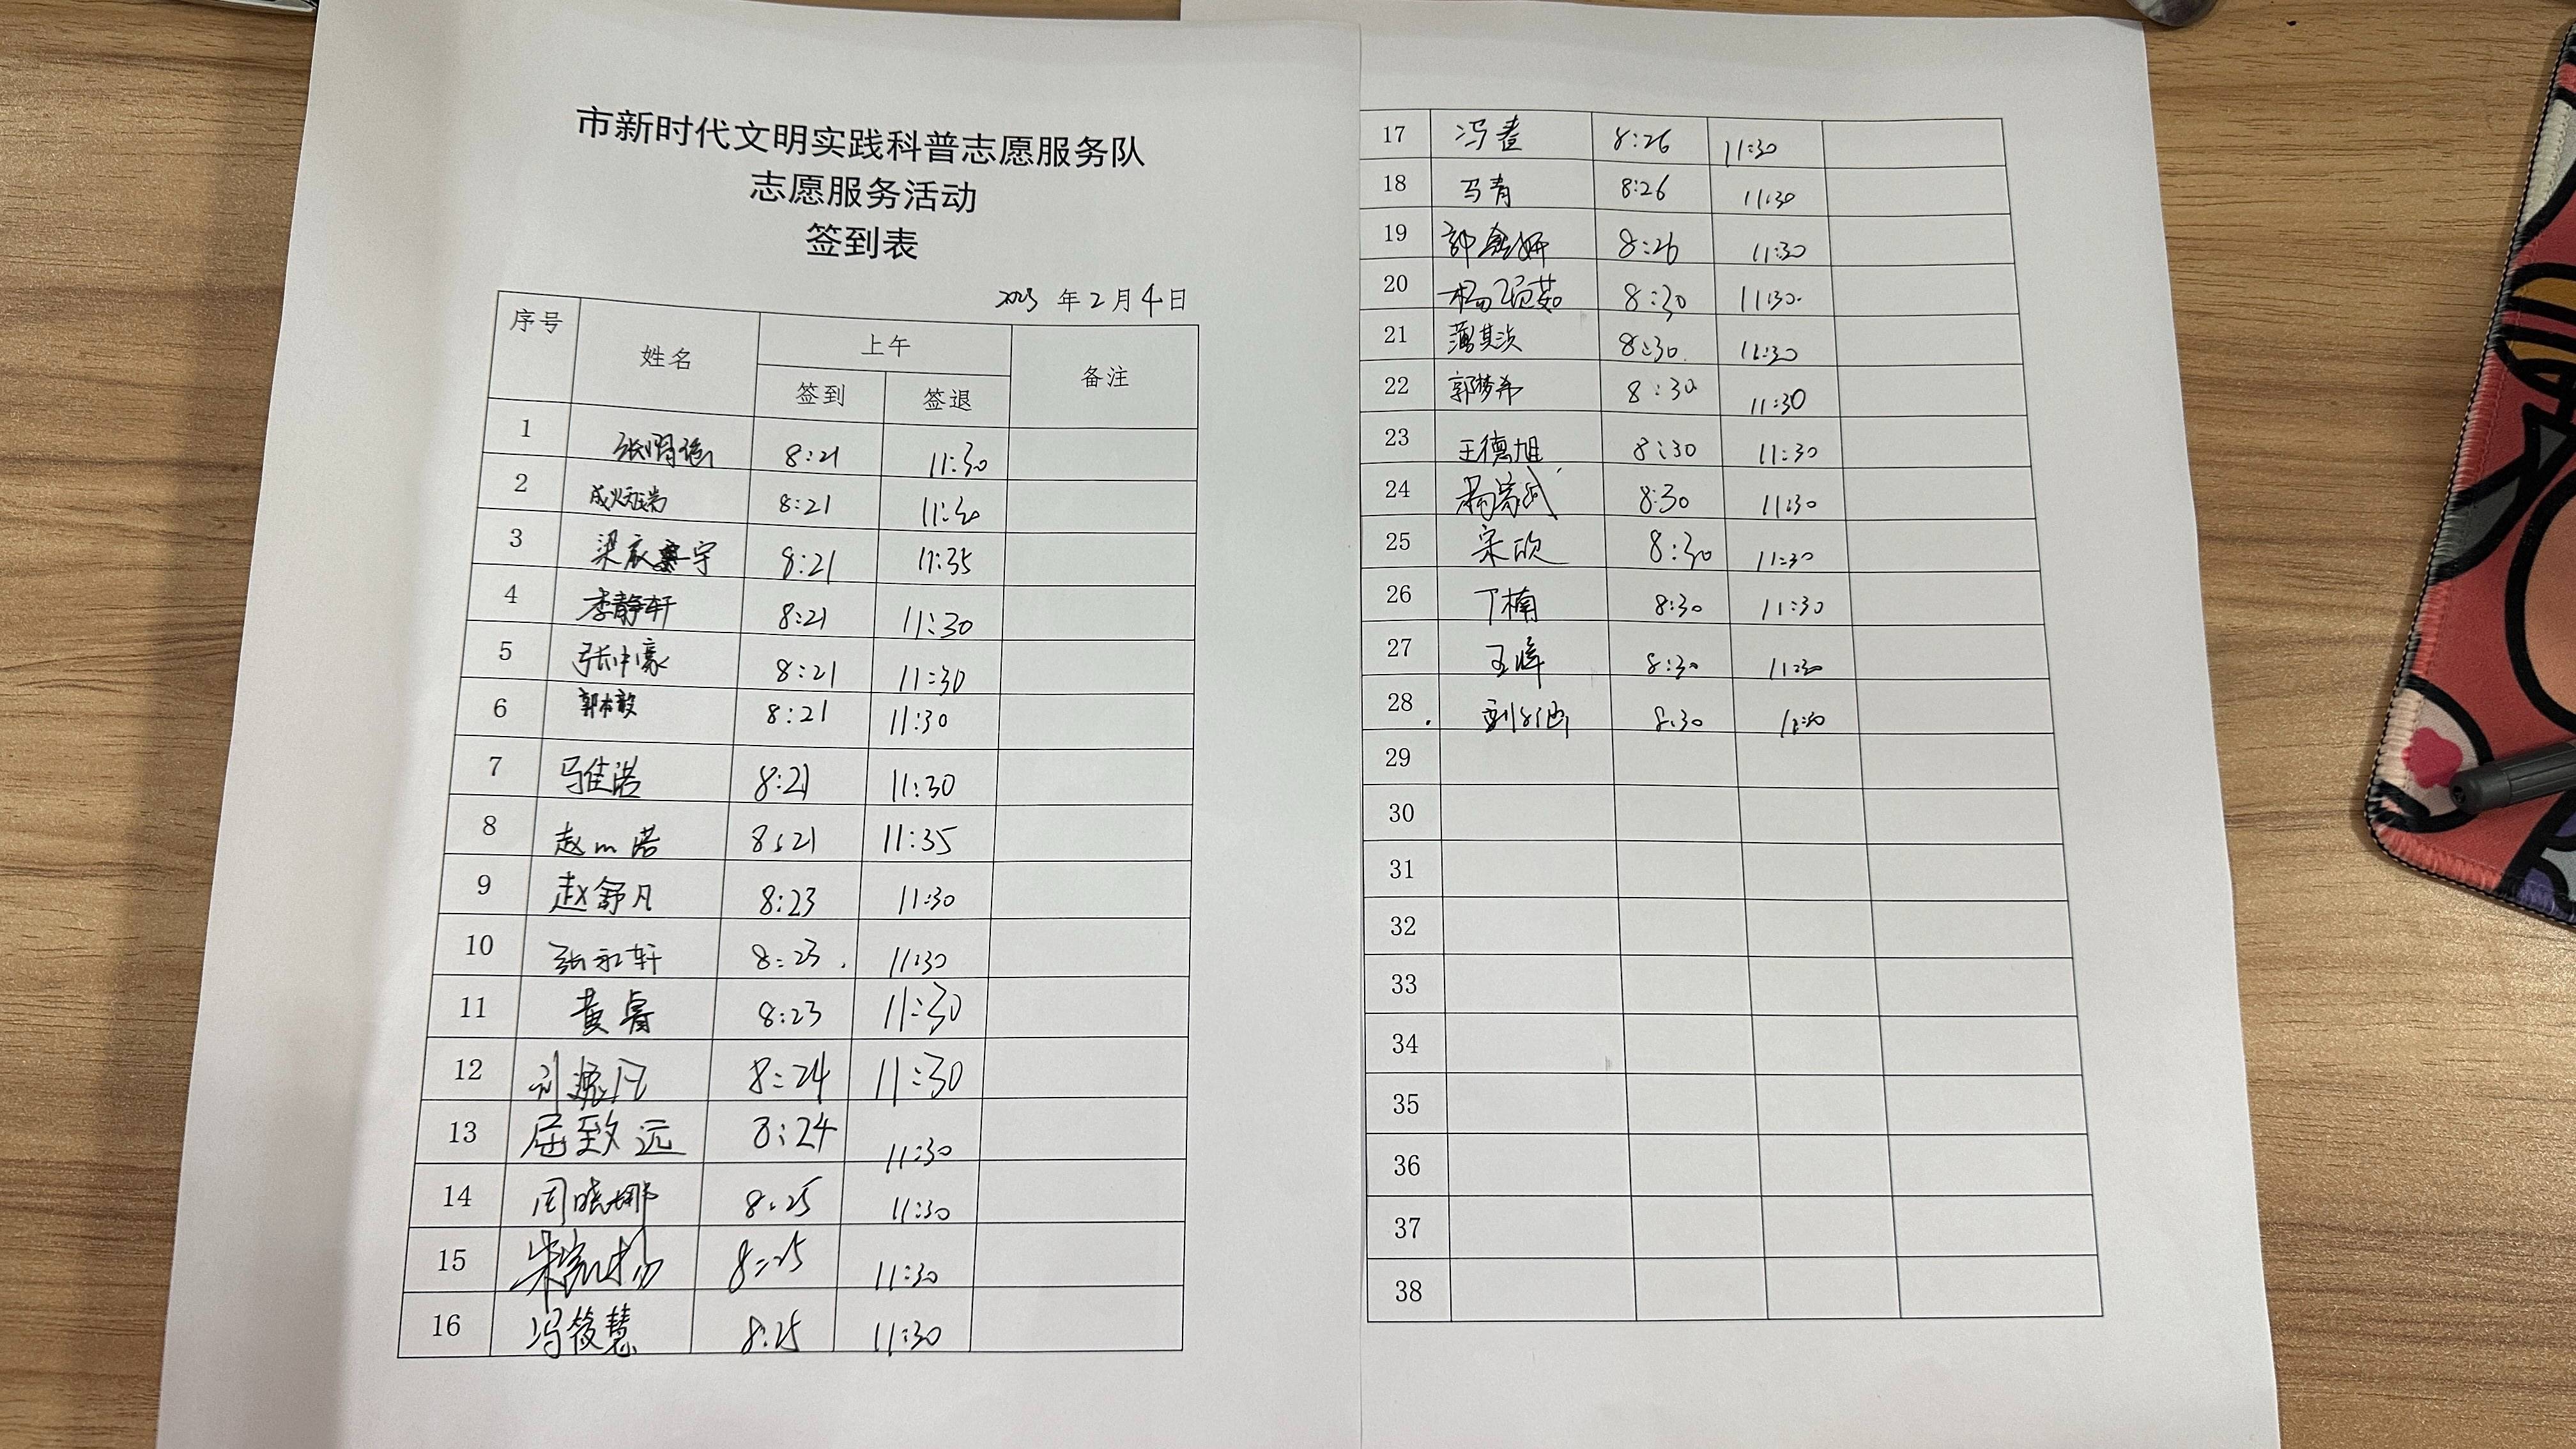 市新时代文明实践科普志愿服务队
志愿服务活动
签到表
2023 年 2 月 4 日
序号 姓名 上午 备注
签到 签退
1 8:21 11:30
2 8:21 11:30
3 梁宸宇 8:21 11:35
4 李静轩 8:21 11:30
5 张中豪 8:21 11:30
6 郭本毅 8:21 11:30
7 马佳浩 8:21 11:30
8 赵 浩 8:21 11:35
9 赵舒凡 8:23 11:30
10 张永轩 8:23 11:30
11 黄睿 8:23 11:30
12 刘 凡 8:24 11:30
13 屈致远 8:24 11:30
14 周晓娜 8:25 11:30
15 8:25 11:30
16 冯筱慧 8:25 11:30
17 冯 8:26 11:30
18 马青 8:26 11:30
19 8:26 11:30
20 8:30 11:30
21 8:30 11:30
22 郭梦希 8:30 11:30
23 王德旭 8:30 11:30
24 8:30 11:30
25 宋欣 8:30 11:30
26 丁楠 8:30 11:30
27 王峰 8:30 11:30
28 8:30 11:30
29
30
31
32
33
34
35
36
37
38